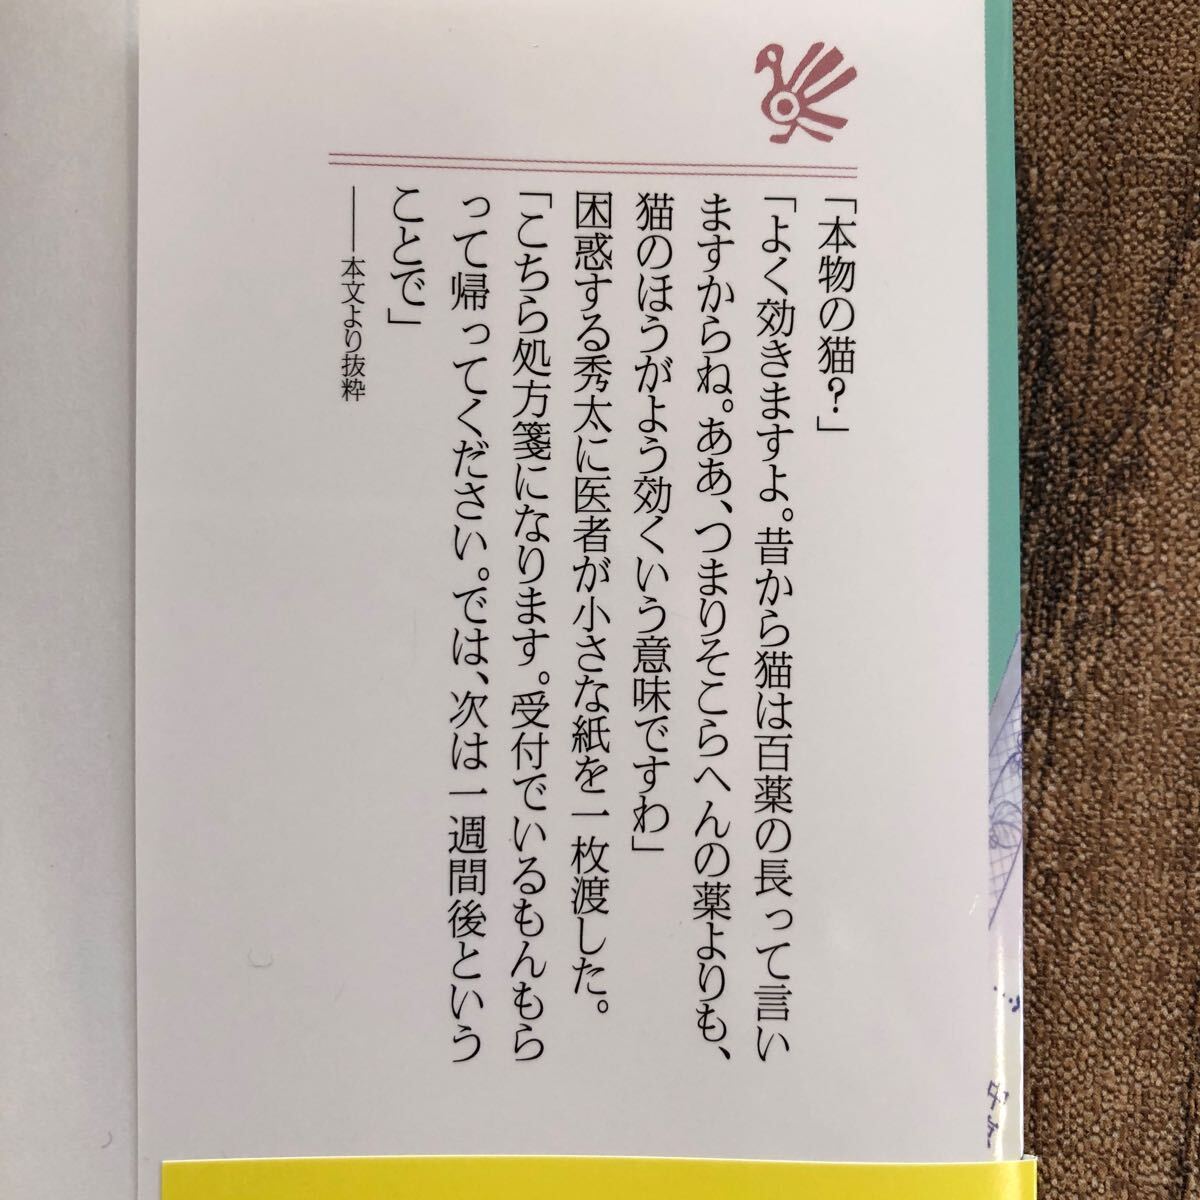 「本物の猫?」
「よく効きますよ。昔から猫は百薬の長って言い
ますからね。ああ、つまりそこらへんの薬よりも、
猫のほうがよう効くいう意味ですわ」
困惑する秀太に医者が小さな紙を一枚渡した。
「こちら処方箋になります。受付でいるもんもら
って帰ってください。では、次は一週間後という
ことで」
――本文より抜粋